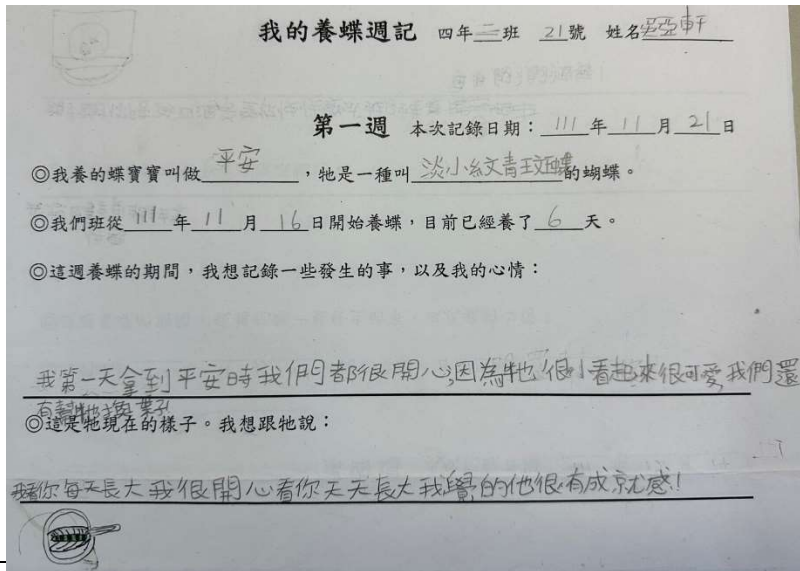 我的養蝶週記 四年二班 21號 姓名吳亞軒
第一週 本次記錄日期：111年11月21日
◎我養的蝶寶寶叫做平安，牠是一種叫淡小紋青斑蝶的蝴蝶。
◎我們班從111年11月16日開始養蝶，目前已經養了6天。
◎這週養蝶的期間，我想記錄一些發生的事，以及我的心情：
我第一天拿到平安時我們都很開心,因為牠很小看起來很可愛,我們還
有幫牠找葉子
◎這是牠現在的樣子。我想跟牠說：
我看你每天長大我很開心看你天天長大我覺的他很有成就感!